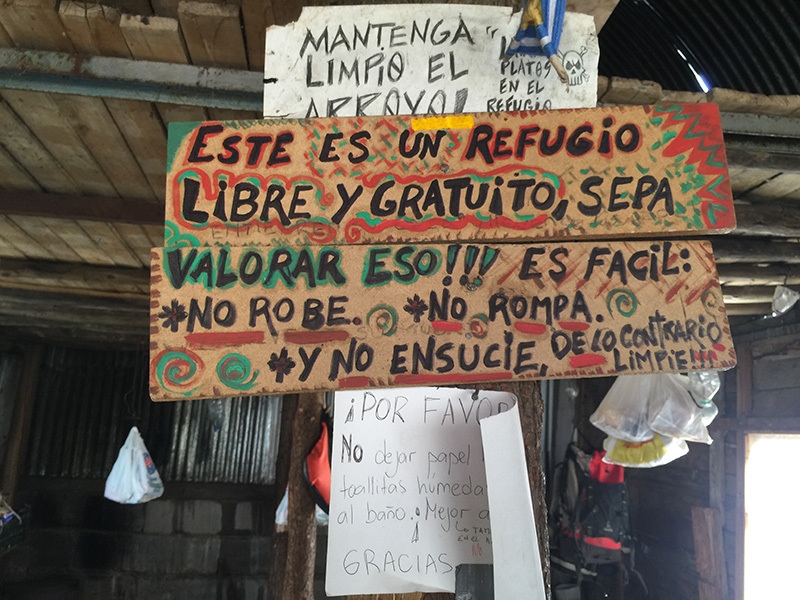 MANTENGA
LIMPIO EL
ARROYO!
PLATOS
EN EL
REFUGIO
ESTE ES UN REFUGIO
LIBRE Y GRATUITO, SEPA
VALORAR ESO!!! ES FACIL:
*NO ROBE. *NO ROMPA.
*Y NO ENSUCIE, DE LO CONTRARIO
LIMPIE!!!!
¡POR FAVOR
No dejar papel
toallitas húmeda
al baño. Mejor a
EN EL
No
GRACIAS